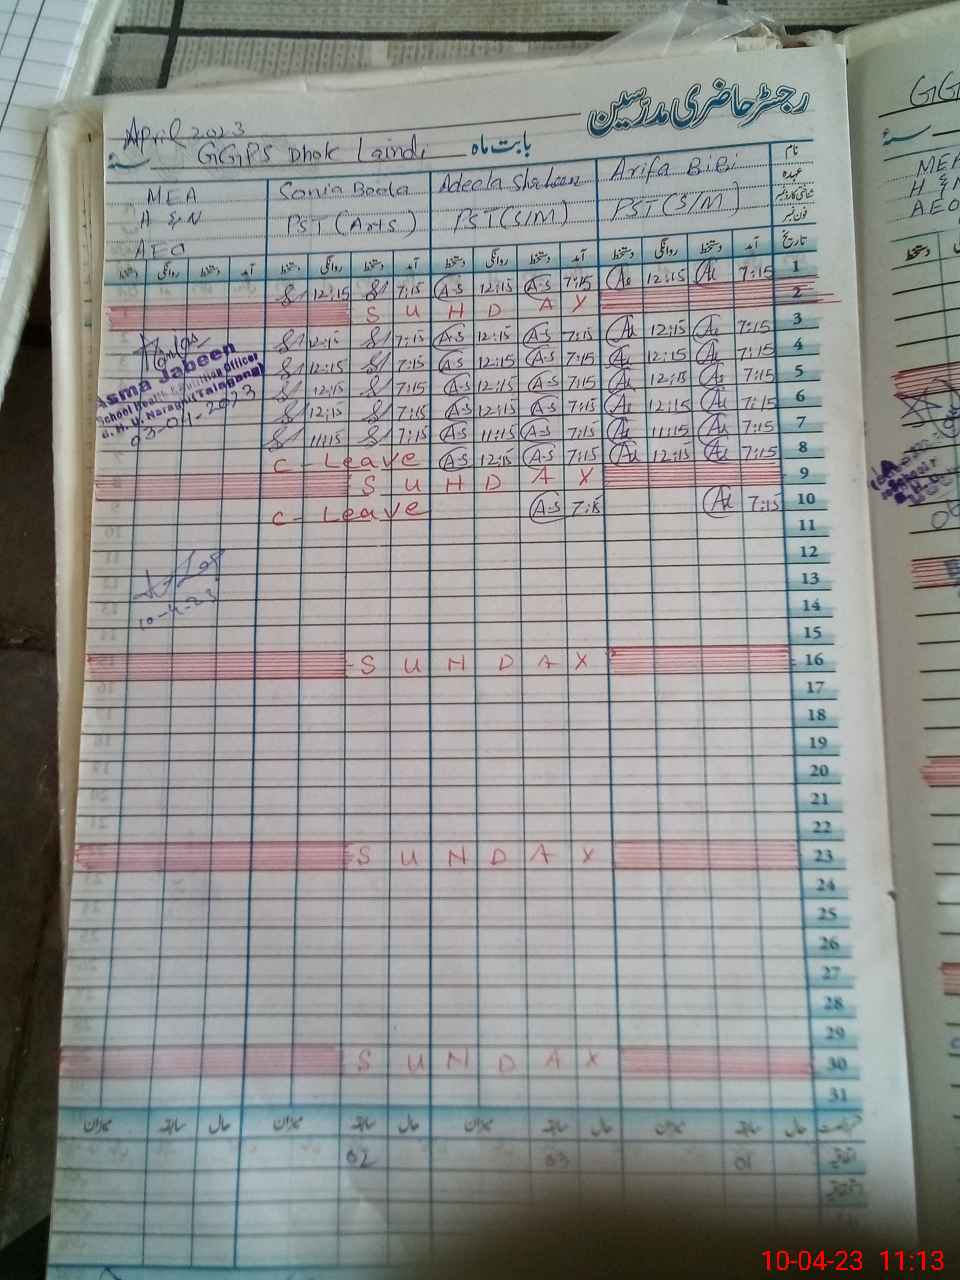 رجسٹر حاضری مدرسین
April 2023
GGPS Dhok Laindi بابت ماہ سنہ
MEA Sonia Beela Adeela Shaheen Arifa BiBi نام
H & N PST (Arts) PST (S/M) PST (S/M) عہدہ
AEO فون نمبر
دستخط روانگی دستخط آمد دستخط روانگی دستخط آمد دستخط روانگی دستخط آمد دستخط روانگی دستخط آمد تاریخ
12:15 7:15 A-S 12:15 A-S 7:15 12:15 7:15 1
SUNDAY 2
12:15 7:15 A-S 12:15 A-S 7:15 12:15 7:15 3
12:15 7:15 A-S 12:15 A-S 7:15 12:15 7:15 4
12:15 7:15 A-S 12:15 A-S 7:15 12:15 7:15 5
12:15 7:15 A-S 12:15 A-S 7:15 12:15 7:15 6
11:15 7:15 A-S 11:15 A-S 7:15 11:15 7:15 7
C-Leave A-S 12:15 A-S 7:15 12:15 7:15 8
SUNDAY 9
C-Leave A-S 7:15 7:15 10
11
12
13
14
15
SUNDAY 16
17
18
19
20
21
22
SUNDAY 23
24
25
26
27
28
29
SUNDAY 30
31
میزان سابقہ حال میزان سابقہ حال میزان سابقہ حال میزان سابقہ حال
02 03 01 اتفاقیہ
Asma Jabeen
School Health & Nutrition Officer
B.H.U. Naraghi (Talagang)
03-04-2023
10-4-23
GG
سنہ
MEA
H & N
AEO
10-04-23 11:13